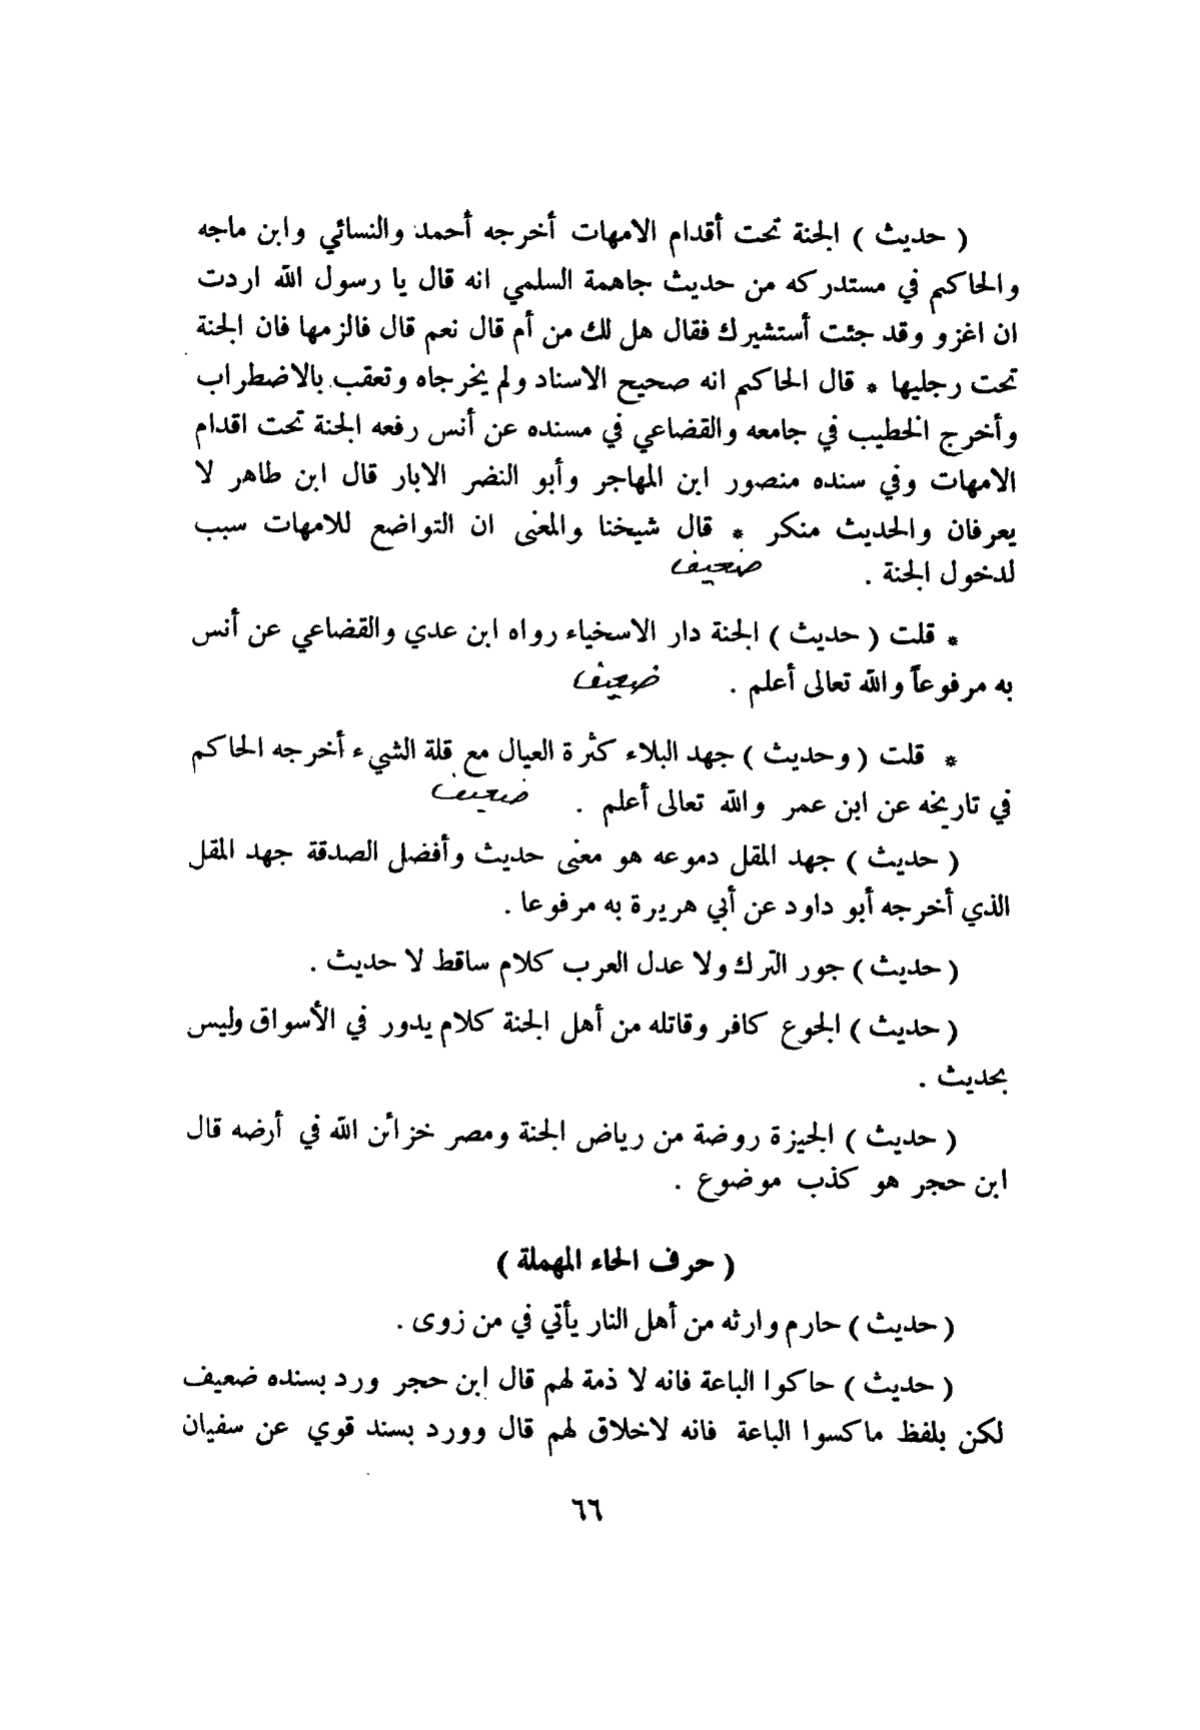 ( حديث ) الجنة تحت أقدام الامهات أخرجه أحمد والنسائي وابن ماجه
والحاكم في مستدركه من حديث جاهمة السلمي انه قال يا رسول الله اردت
ان اغزو وقد جئت أستشيرك فقال هل لك من أم قال نعم قال فالزمها فان الجنة
تحت رجليها * قال الحاكم انه صحيح الاسناد ولم يخرجاه وتعقب بالاضطراب
وأخرج الخطيب في جامعه والقضاعي في مسنده عن أنس رفعه الجنة تحت اقدام
الامهات وفي سنده منصور ابن المهاجر وأبو النضر الابار قال ابن طاهر لا
يعرفان والحديث منكر * قال شيخنا والمعنى ان التواضع للامهات سبب
لدخول الجنة . ضعيف
* قلت ( حديث ) الجنة دار الاسخياء رواه ابن عدي والقضاعي عن أنس
به مرفوعاً والله تعالى أعلم . ضعيف
* قلت ( وحديث ) جهد البلاء كثرة العيال مع قلة الشيء أخرجه الحاكم
في تاريخه عن ابن عمر والله تعالى أعلم . ضعيف
( حديث ) جهد المقل دموعه هو معنى حديث وأفضل الصدقة جهد المقل
الذي أخرجه أبو داود عن أبي هريرة به مرفوعا .
( حديث ) جور الترك ولا عدل العرب كلام ساقط لا حديث .
( حديث ) الجوع كافر وقاتله من أهل الجنة كلام يدور في الأسواق وليس
بحديث .
( حديث ) الجيزة روضة من رياض الجنة ومصر خزائن الله في أرضه قال
ابن حجر هو كذب موضوع .
( حرف الحاء المهملة )
( حديث ) حارم وارثه من أهل النار يأتي في من زوى .
( حديث ) حاكوا الباعة فانه لا ذمة لهم قال ابن حجر ورد بسنده ضعيف
لكن بلفظ ماكسوا الباعة فانه لاخلاق لهم قال وورد بسند قوي عن سفيان
٦٦